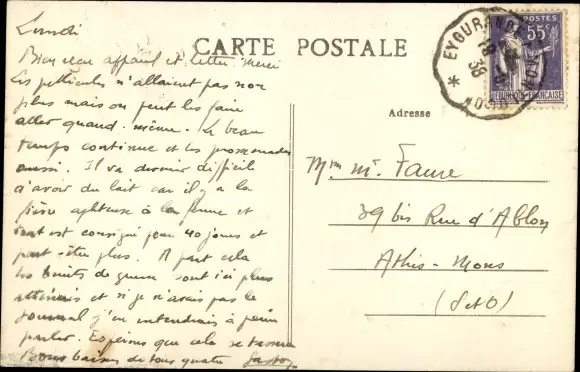 Lundi
Bien reçu appareil et lettre merci
Les pellicules n'allaient pas non
plus mais on peut les faire
aller quand-même. Le beau
temps continue et les promenades
aussi. Il va devenir difficile
d'avoir du lait car il y a la
fièvre aphteuse à la ferme et
tout est consigné pour 40 jours et
peut-être plus. A part cela
les bruits de guerre sont ici plus
atténués et si je n'avais pas le
journal j'en entendrais à peine
parler. Espérons que cela se tassera
Bons baisers de tous quatre
CARTE POSTALE
Adresse
Mme M. Faure
39 bis Rue d'Ablon
Athis-Mons
(S et O)
POSTES
55c
RÉPUBLIQUE FRANÇAISE
EYGURANDE
38